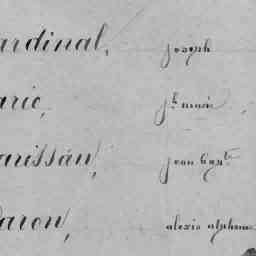 ardinal, joseph
arie, jh. marie
arissán, jean bapt.
aron, alexis alphons